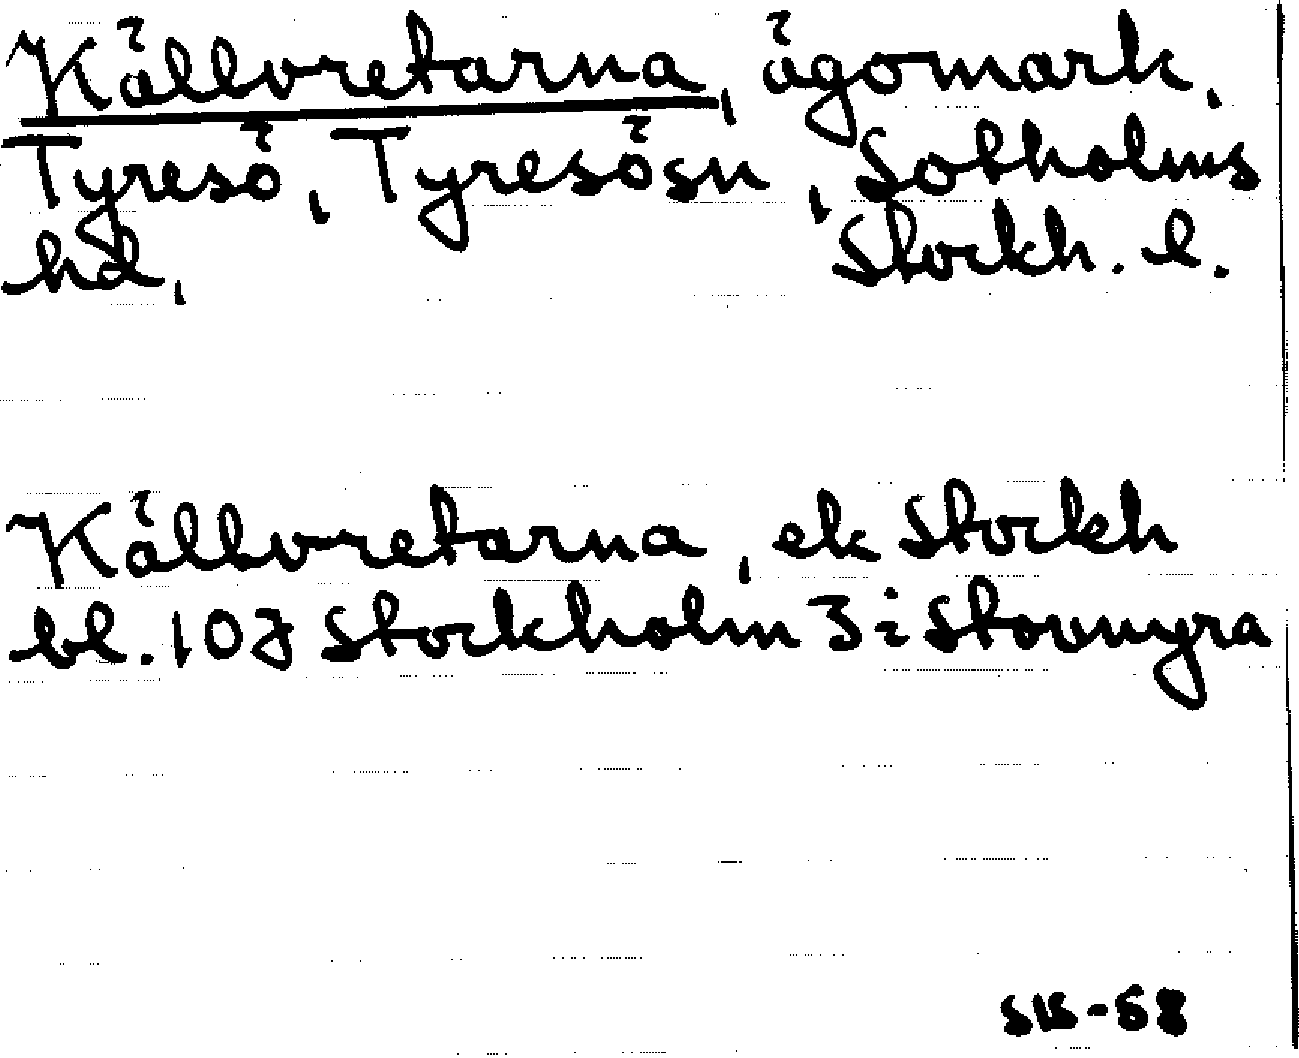 Källvretarna, ägomark,
Tyresö, Tyresösn, Sotholms
hd, Stockh. l.
Källvretarna, ek Stockh
bl. 10J Stockholm 3i Stormyra
SIS-68